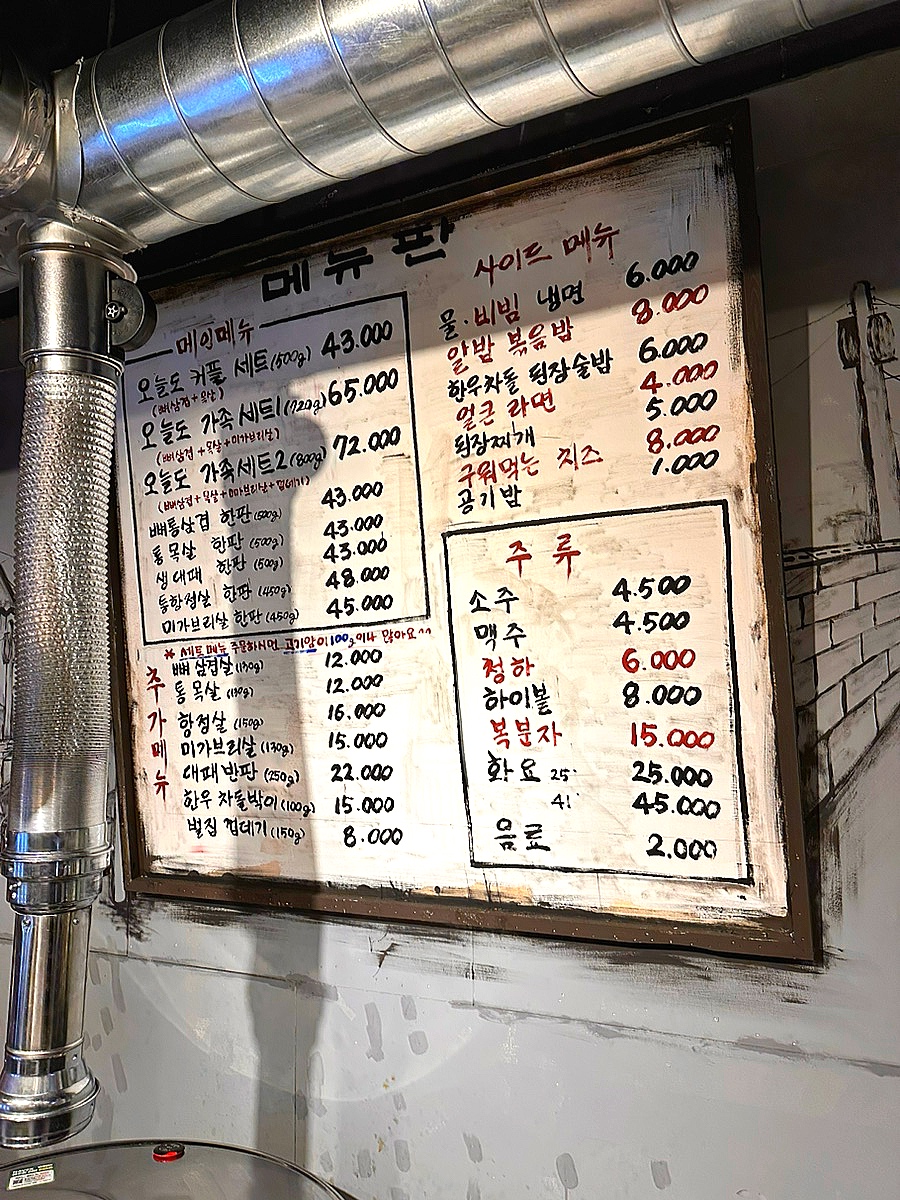 메뉴판
메인메뉴
오늘도 커플 세트(500g) 43.000
(뼈삼겹+목살)
오늘도 가족세트1(720g) 65.000
(뼈삼겹+목살+미가브리살)
오늘도 가족세트2(800g) 72.000
(뼈삼겹+목살+미가브리살+껍데기)
뼈통삼겹 한판(500g) 43.000
통목살 한판(500g) 43.000
생대패 한판(500g) 43.000
통항정살 한판(450g) 48.000
미가브리살 한판(450g) 45.000
* 세트메뉴 주문하시면 고기양이 100g이나 많아요^^
추가메뉴
뼈삼겹살(130g) 12.000
통목살(130g) 12.000
항정살(150g) 16.000
미가브리살(130g) 15.000
대패반판(250g) 22.000
한우 차돌박이(100g) 15.000
벌집 껍데기(150g) 8.000
사이드 메뉴
물·비빔 냉면 6.000
알밥 볶음밥 8.000
한우차돌 된장술밥 6.000
얼큰 라면 4.000
된장찌개 5.000
구워먹는 치즈 8.000
공기밥 1.000
주류
소주 4.500
맥주 4.500
청하 6.000
하이볼 8.000
복분자 15.000
화요 25° 25.000
41° 45.000
음료 2.000